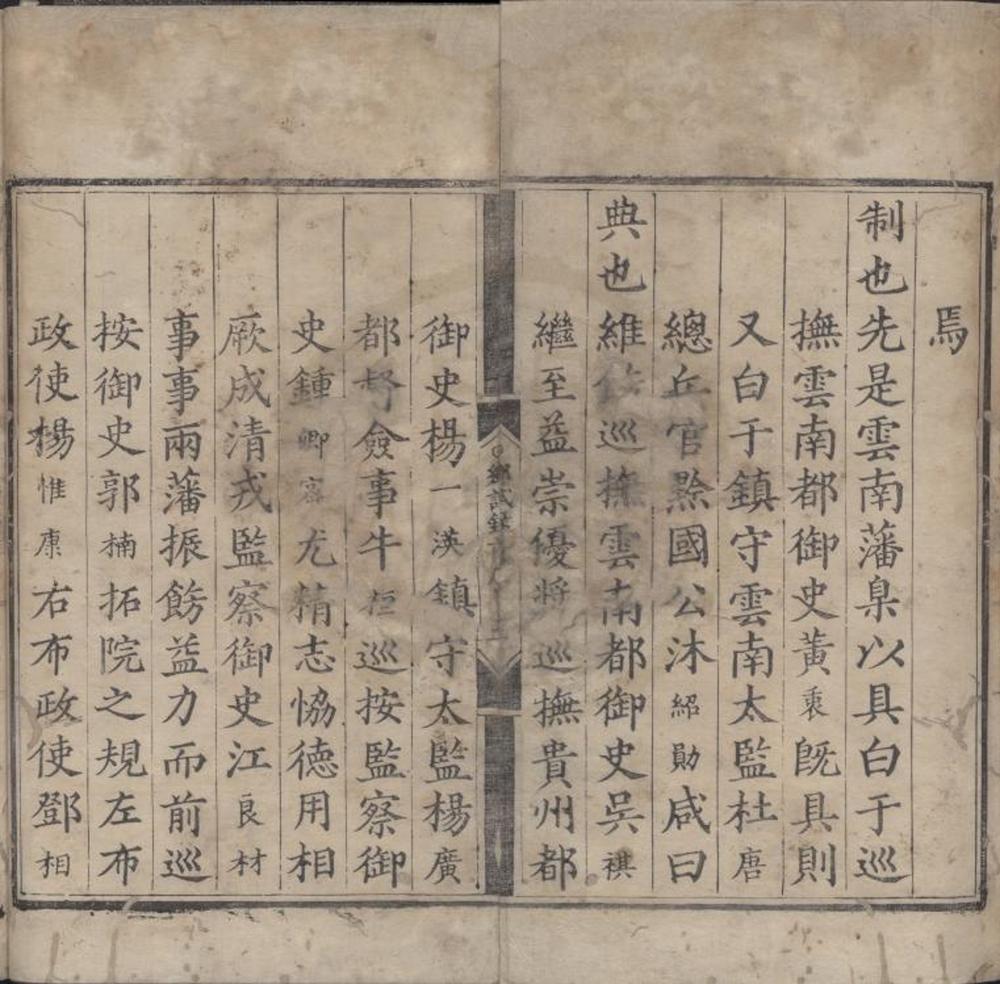 焉
制也先是雲南藩臬以具白于巡
撫雲南都御史黃衷旣具則
又白于鎮守雲南太監杜唐
總兵官黔國公沐紹勛咸曰
典也維 巡撫雲南都御史吳祺
繼至益崇優將巡撫貴州都
鄉試錄
御史楊一渶鎮守太監楊廣
都 僉事牛桓巡按監察御
史鍾卿密尤精志恊德用相
厥成清戎監察御史江良材
事事兩藩振飭益力而前巡
按御史郭楠拓院之規左布
政使楊惟康右布政使鄧相